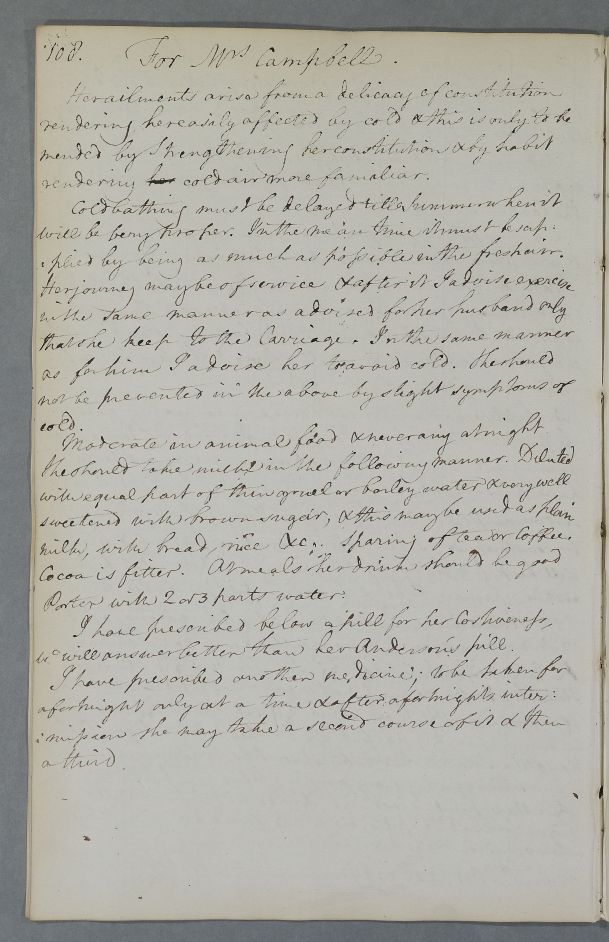 108. For Mrs Campbell.
Her ailments arise from a delicacy of constitution
rendering her easily affected by cold & this is only to be
mended by Strengthening her constitution & by habit
rendering her cold air more familiar.
Cold bathing must be delayed till Summer when it
will be very proper. In the mean time it must be sup:
:plied by being as much as possible in the fresh air.
Her journey may be of service & after it I advise exercise
in the same manner as advised for her husband only
that she keep to the Carriage. In the same manner
as for him I advise her to avoid cold. She should
not be prevented in the above by slight symptoms of
cold.
Moderate in animal food & never any at night
She should take milk in the following manner. Diluted
with equal part of thin gruel or barley water & very well
sweetened with brown sugar, & this may be used as plain
milk, with bread, rice &c:. Sparing of tea or Coffee.
Cocoa is fitter. At meals her drink should be good
Porter with 2 or 3 parts water:
I have prescribed below a pill for her Costiveness,
wc will answer better than her Anderson's pill.
I have prescribed another medicine; to be taken for
a fortnight only at a time & after a fortnights inter:
:mission she may take a second course of it & then
a third